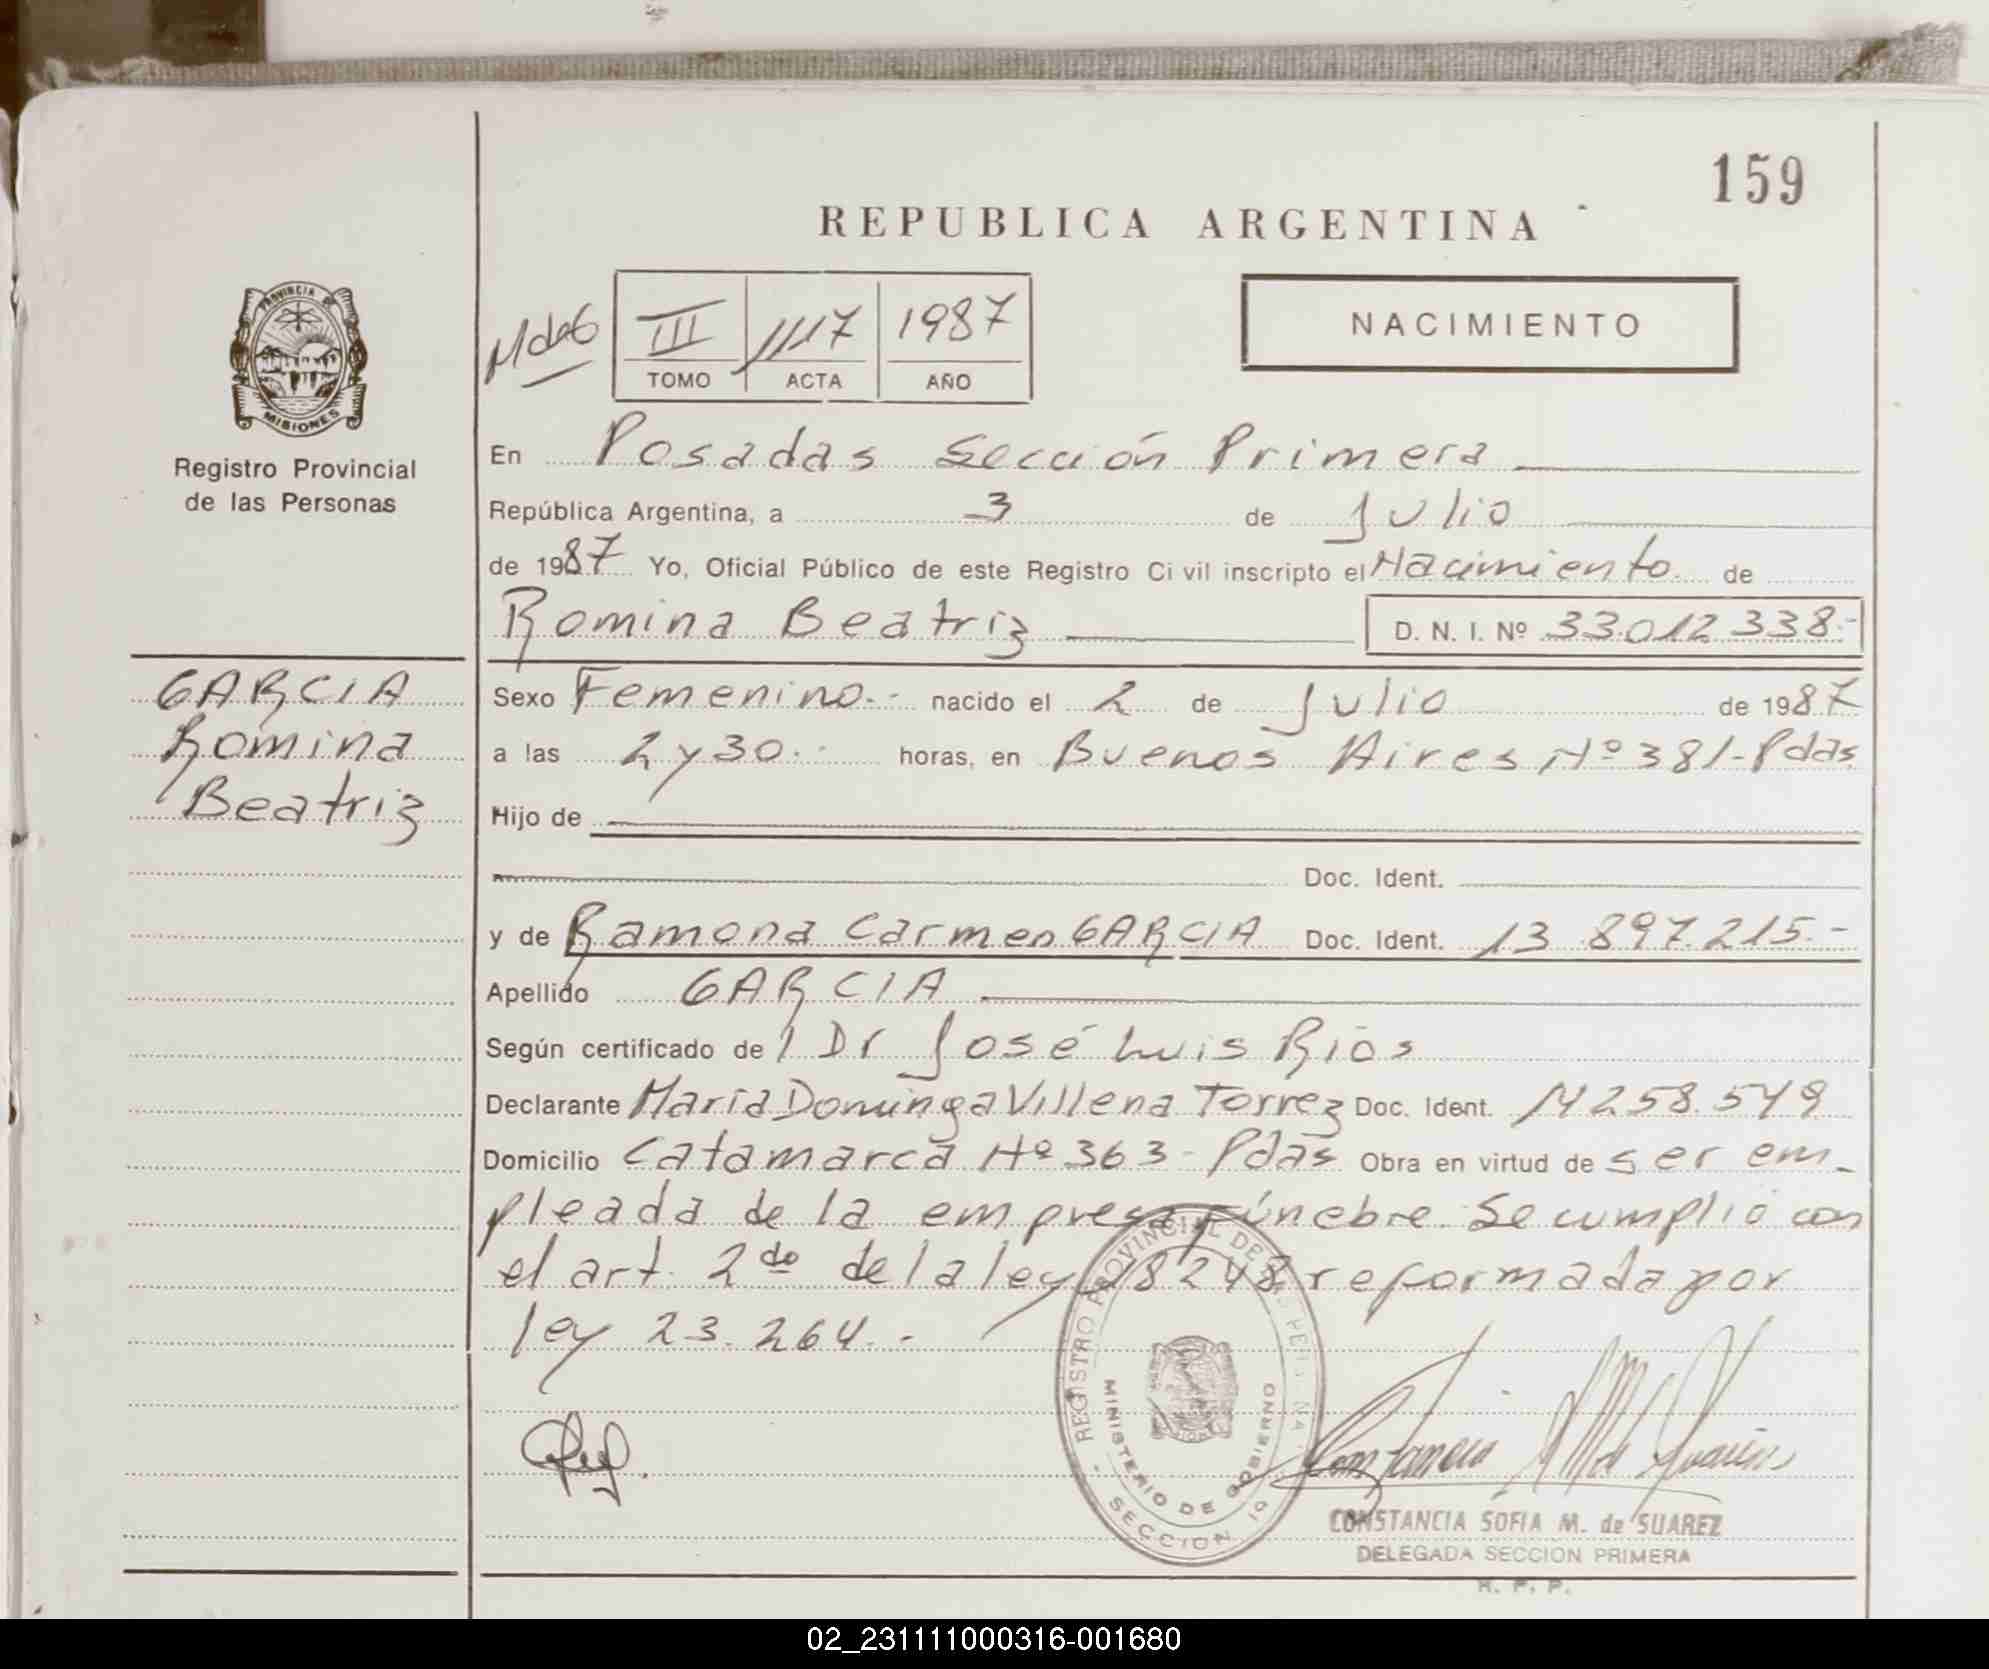 159
REPUBLICA ARGENTINA
NACIMIENTO
III 1117 1987
TOMO ACTA AÑO
PROVINCIA DE
MISIONES
Registro Provincial
de las Personas
En Posadas Sección Primera
República Argentina, a 3 de Julio
de 1987 Yo, Oficial Público de este Registro Ci vil inscripto el Nacimiento de
Romina Beatriz D. N. I. Nº 33.012.338.-
GARCIA
Romina
Beatriz
Sexo Femenino.- nacido el 2 de Julio de 1987
a las 2 y 30.- horas, en Buenos Aires Nº 381-Pdas
Hijo de
Doc. Ident.
y de Ramona Carmen GARCIA Doc. Ident. 13.897.215.-
Apellido GARCIA
Según certificado de l Dr José Luis Rios
Declarante Maria Dominga Villena Torrez Doc. Ident. 14258.549
Domicilio Catamarca Nº 363 - Pdas Obra en virtud de ser em-
pleada de la empresa fúnebre. Se cumplió con
el art. 2do de la ley 18248 reformada por
ley 23.264.-
REGISTRO PROVINCIAL DE LAS PERSONAS
MINISTERIO DE GOBIERNO
SECCION 1º
CONSTANCIA SOFIA M. de SUAREZ
DELEGADA SECCION PRIMERA
R. P. P.
02_231111000316-001680